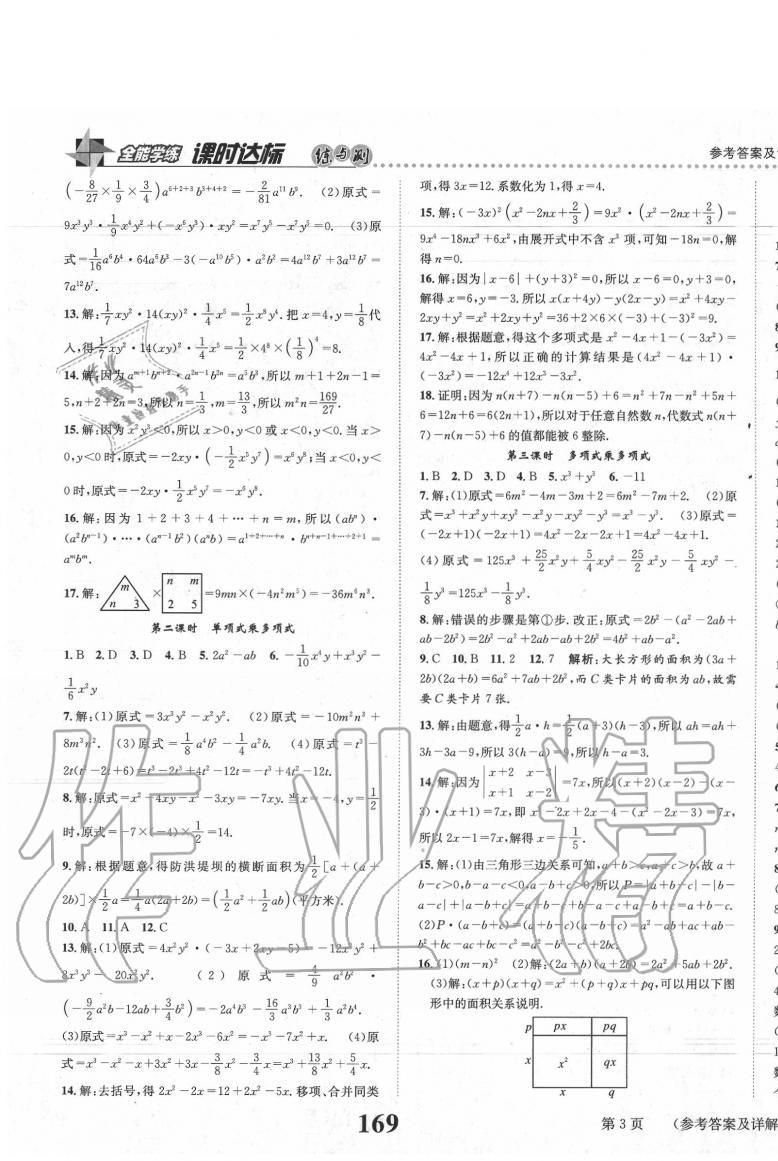 全能学练 课时达标 练与测
参考答案及
(-8/27×1/9×3/4)a⁶⁺²⁺³b³⁺⁴⁺²=-2/81a¹¹b⁹. (2)原式=
9x³y³·1/9x⁴y²+(-x⁶y³)·xy²=x⁷y⁵-x⁷y⁵=0. (3)原
式=1/16a⁶b⁴·64a⁶b³-3(-a¹⁰b⁵)·a²b²=4a¹²b⁷+3a¹²b⁷=
7a¹²b⁷.
13.解:1/7xy²·14(xy)²·1/4x⁵=1/2x⁸y⁴.把x=4,y=1/8代
入,得1/7xy²·14(xy)²·1/4x⁵=1/2×4⁸×(1/8)⁴=8.
14.解:因为aᵐ⁺¹bⁿ⁺²·a²ⁿ⁻¹b²ⁿ=a⁵b³,所以m+1+2n-1=
5,n+2+2n=3,所以n=1/3,m=13/3,所以m²n=169/27.
15.解:因为x³y⁵<0,所以x>0,y<0或x<0,y<0.当x>
0,y<0时,原式=-2xy·(-1/2x⁵y⁷)=x⁶y⁸;当x<0,y<
0时,原式=-2xy·1/2x⁵y⁷=-x⁶y⁸.
16.解:因为1+2+3+4+…+n=m,所以(abⁿ)·
(a²bⁿ⁻¹)·…·(aⁿ⁻¹b²)(aⁿb)=a¹⁺²⁺…⁺ⁿ·bⁿ⁺ⁿ⁻¹⁺…⁺²⁺¹=
aᵐbᵐ.
17.解: m n 3 × n m 2 5 =9mn×(-4n²m⁵)=-36m⁶n³.
第二课时 单项式乘多项式
1.B 2.D 3.D 4.B 5.2a²-ab 6.-1/10x⁴y+x³y²-
1/6x²y
7.解:(1)原式=3x³y²-x²y². (2)原式=-10m²n³+
8m³n². (3)原式=1/8a⁴b²-1/4a²b. (4)原式=t³-
2t(t²-2t+6)=t³-2t³+4t²-12t=-t³+4t²-12t.
8.解:原式=x²-4xy-x²-3xy=-7xy.当x=-4,y=1/2
时,原式=-7×(-4)×1/2=14.
9.解:根据题意,得防洪堤坝的横断面积为1/2[a+(a+
2b)]×1/2a=1/4a(2a+2b)=(1/2a²+1/2ab)(平方米).
10.A 11.A 12.C
13.解:(1)原式=4x²y²·(-3x+2xy-5)=-12x³y²+
8x³y³-20x²y². (2)原式=4/9a²b²·
(-9/2a²b-12ab+3/4b²)=-2a⁴b³-16/3a³b³+1/3a²b⁴.
(3)原式=x³-x²+x-2x³-6x²=-x³-7x²+x. (4)原
式=x³-x²-x+3x²+3x-3/8x²-3/4x=x³+13/8x²+5/4x.
14.解:去括号,得2x²-2x=12+2x²-5x.移项、合并同类
项,得3x=12.系数化为1,得x=4.
15.解:(-3x)²(x²-2nx+2/3)=9x²·(x²-2nx+2/3)=
9x⁴-18nx³+6x²,由展开式中不含x³项,可知-18n=0,解
得n=0.
16.解:因为|x-6|+(y+3)²=0,所以x-6=0,y+3=0,
解得x=6,y=-3.所以x(x+4y)-y(2x-y)=x²+4xy-
2xy+y²=x²+2xy+y²=36+2×6×(-3)+(-3)²=9.
17.解:根据题意,得这个多项式是x²-4x+1-(-3x²)=
4x²-4x+1,所以正确的计算结果是(4x²-4x+1)·
(-3x²)=-12x⁴+12x³-3x².
18.证明:因为n(n+7)-n(n-5)+6=n²+7n-n²+5n+
6=12n+6=6(2n+1),所以对于任意自然数n,代数式n(n+
7)-n(n-5)+6的值都能被6整除.
第三课时 多项式乘多项式
1.B 2.D 3.D 4.B 5.x³+y³ 6.-11
7.解:(1)原式=6m²-4m-3m+2=6m²-7m+2. (2)原
式=x³+x²y+xy²-x²y-xy²-y³=x³-y³. (3)原式=
(-2x+1)(-2x+1)=4x²-2x-2x+1=4x²-4x+1.
(4)原式=125x³+25/2x²y+5/4xy²-25/2x²y-5/4xy²-
1/8y³=125x³-1/8y³.
8.解:错误的步骤是第①步.改正:原式=2b²-(a²-2ab+
ab-2b²)=2b²-a²+2ab-ab+2b²=4b²+ab-a².
9.C 10.B 11.2 12.7 解析:大长方形的面积为(3a+
2b)(2a+b)=6a²+7ab+2b²,而C类卡片的面积为ab,故需
要C类卡片7张.
13.解:由题意,得1/2a·h=1/2(a+3)(h-3),所以ah=ah+
3h-3a-9,所以3(h-a)=9,所以h-a=3.
14.解:因为|x+2 x-3 x+1 x-2|=7x,所以(x+2)(x-2)-(x-
3)·(x+1)=7x,即x²-2x+2x-4-(x²-2x-3)=7x,
所以2x-1=7x,解得x=-1/5.
15.解:(1)由三角形三边关系可知,a+b>c,a+c>b,故a+
b-c>0,b-a-c<0,a-b+c>0,所以P=|a+b-c|-|b-
a-c|+|a-b+c|=a+b-c+b-a-c+a-b+c=a+b-c.
(2)P·(a-b+c)=(a+b-c)(a-b+c)=a²-ab+ac+ab-
b²+bc-ac+bc-c²=a²-b²-c²+2bc.
16.(1)(m-n)² (2)解:(2a+b)(a+2b)=2a²+5ab+2b².
(3)解:(x+p)(x+q)=x²+(p+q)x+pq,可以用以下图
形中的面积关系说明.
p px pq
x x² qx
x q
169
第3页 (参考答案及详解